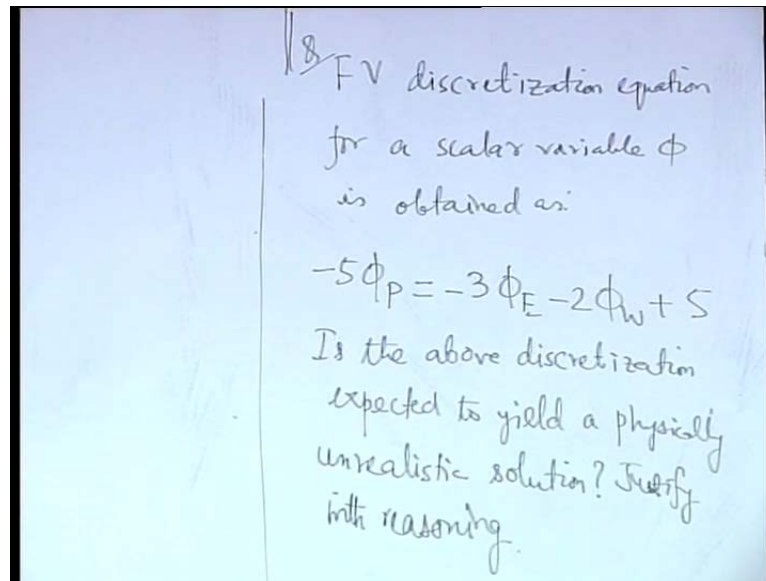 Q FV discretization equation
for a scalar variable ϕ
is obtained as:
-5ϕP = -3ϕE - 2ϕW + 5
Is the above discretization
expected to yield a physically
unrealistic solution? Justify
with reasoning.